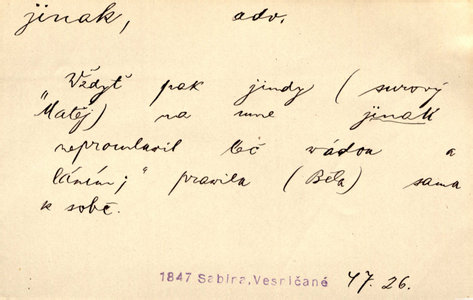 jinak, adv.
Vždyť pak jindy (surový
"Matěj) na mne jinak
nepromluvil leč vádou a
láním;" pravila (Běla) sama
k sobě.
1847 Sabina, Vesničané 47. 26.